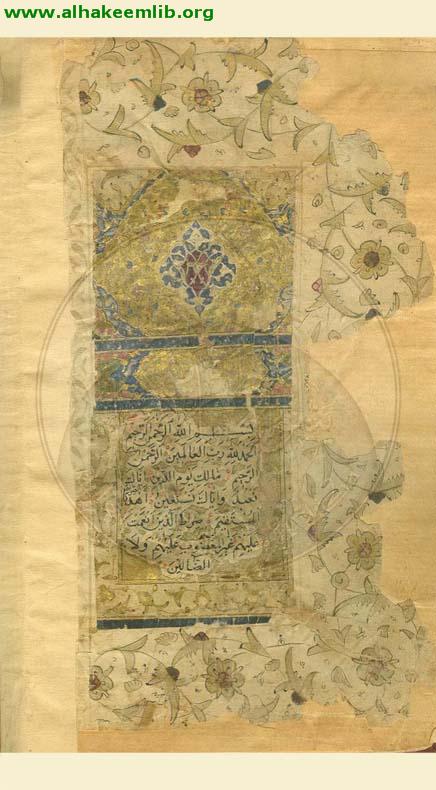 www.alhakeemlib.org
بسم الله الرحمن الرحيم
الحمد لله رب العالمين الرحمن
الرحيم مالك يوم الدين اياك
نعبد واياك نستعين اهدنا
المستقيم صرط الذين انعمت
عليهم غير المغضوب عليهم ولا
الضالين